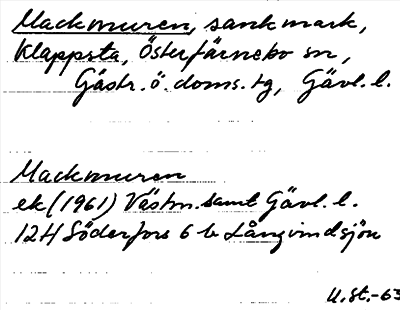 Mackmuren, sankmark,
Klappsta, Österfärnebo sn,
Gästr. ö. doms. tg, Gävl. l.
Mackmuren
ek (1961) Västm. samt Gävl. l.
12H Söderfors 6 b Långvindsjön
U. St. -63